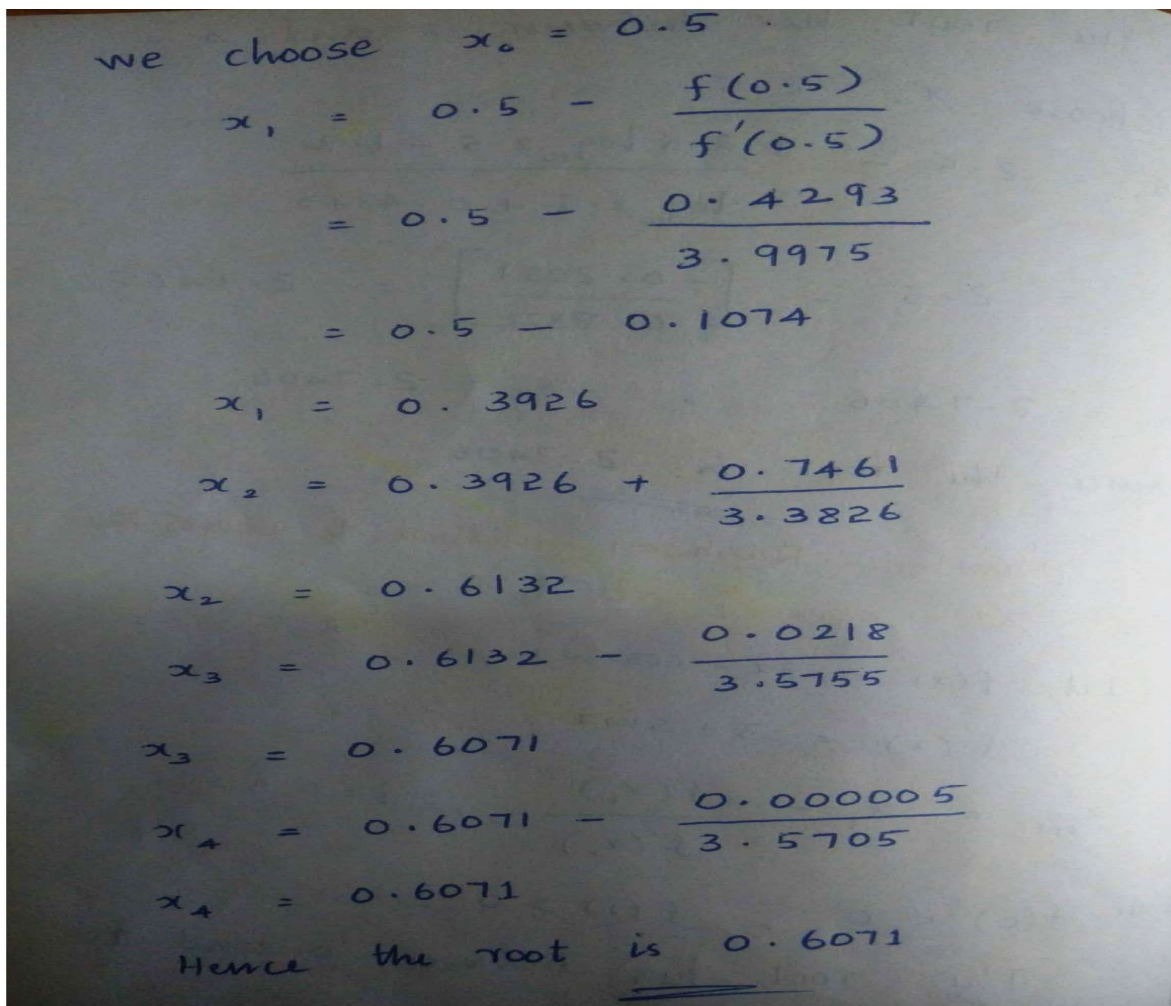 we choose x₀ = 0.5 .
x₁ = 0.5 - f(0.5) / f'(0.5)
= 0.5 - 0.4293 / 3.9975
= 0.5 - 0.1074
x₁ = 0.3926
x₂ = 0.3926 + 0.7461 / 3.3826
x₂ = 0.6132
x₃ = 0.6132 - 0.0218 / 3.5755
x₃ = 0.6071
x₄ = 0.6071 - 0.000005 / 3.5705
x₄ = 0.6071
Hence the root is 0.6071